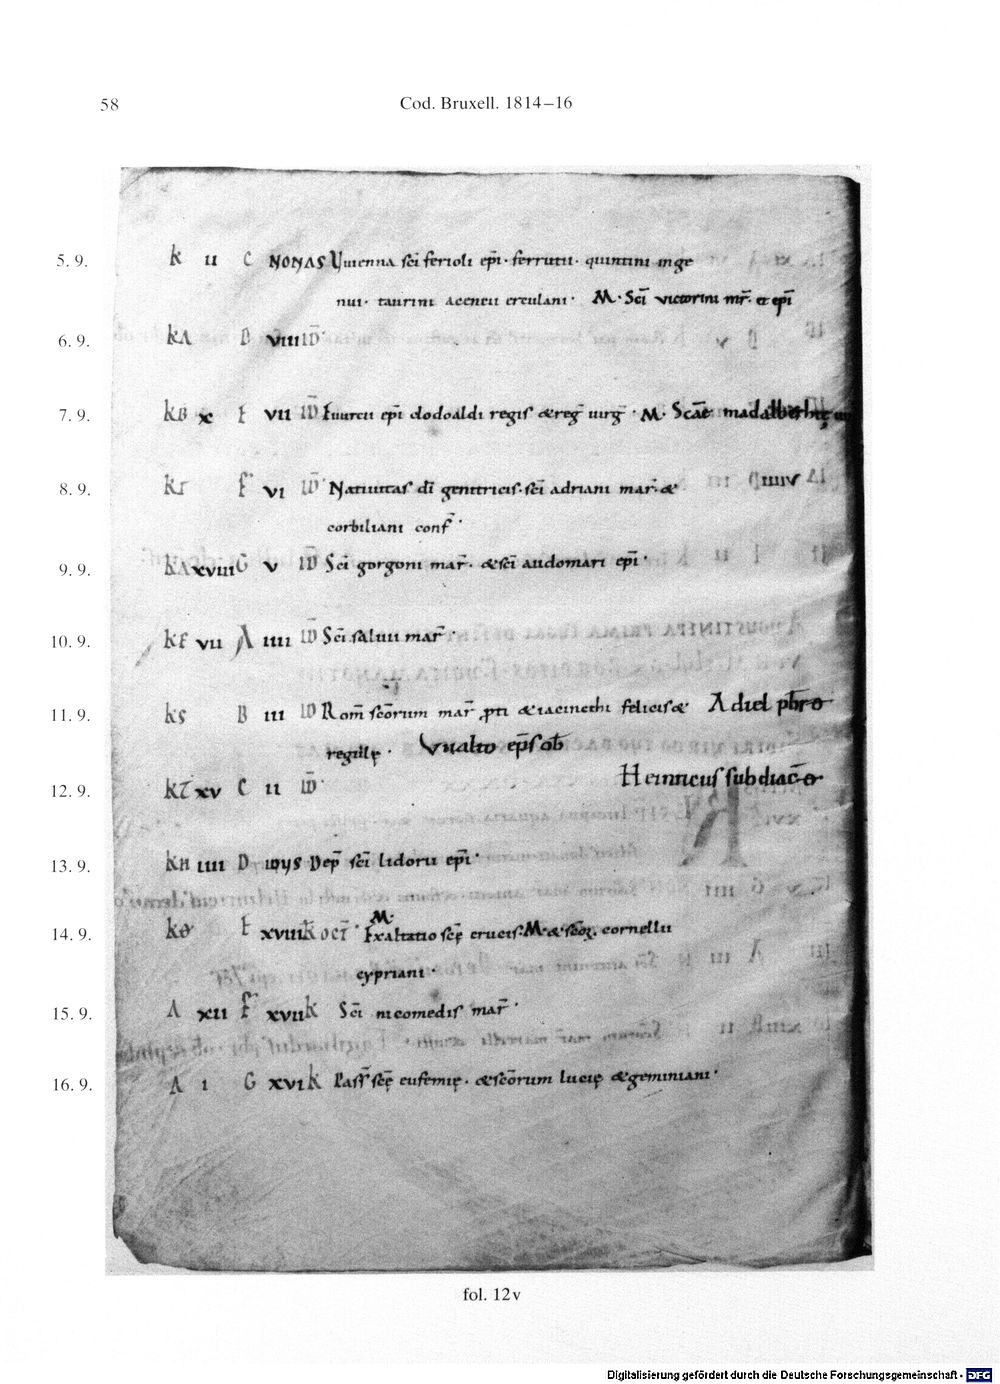 58 Cod. Bruxell. 1814–16
5. 9. K II C NONAS Vuienna sc̄i ferioli ep̄i · ferrucii · quintini inge
nui · taurini aceneii erculani · M · Sc̄i victorini mr̄ · et ep̄i
6. 9. KA D VIIII ID̄
7. 9. KB X E VII ID̄ Euurcii ep̄i clodoaldi regis & reḡ uirḡ · M · Scāe madalbertę
8. 9. F VI ID̄ Natiuitas dī genitricis · sc̄i adriani mar̄ · &
corbiliani conf̄ ·
9. 9. KA XVIII G V ID̄ Sc̄i gorgoni mar̄ · & sc̄i audomari ep̄i ·
10. 9. KE VII A IIII ID̄ Sc̄i saluii mar̄ ·
11. 9. KS B III ID Rom̄ sc̄orum mar̄ ꝓti & iacincthi felicis & Adiel pb̄r o
regulę · Vualto ep̄s ob̄
Heinricus subdiac̄ o
12. 9. XV C II ID̄
13. 9. KH IIII D IDVS Dep̄ sc̄i lidorii ep̄i ·
M ·
14. 9. Kθ E XVIII K̄ OCT̄ · Exaltatio sc̄ę crucis · M · & sc̄oꝝ · cornelii
cypriani ·
15. 9. A XII F XVII K Sc̄i nicomedis mar̄ ·
16. 9. A I G XVI K Pass̄ sc̄ę eufemię · & sc̄orum lucię & geminiani ·
fol. 12v
Digitalisierung gefördert durch die Deutsche Forschungsgemeinschaft - DFG